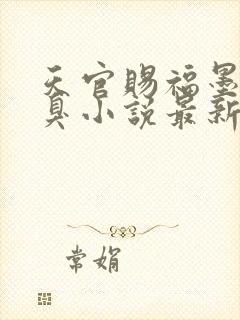 天官赐福墨
真小说最新
常娟